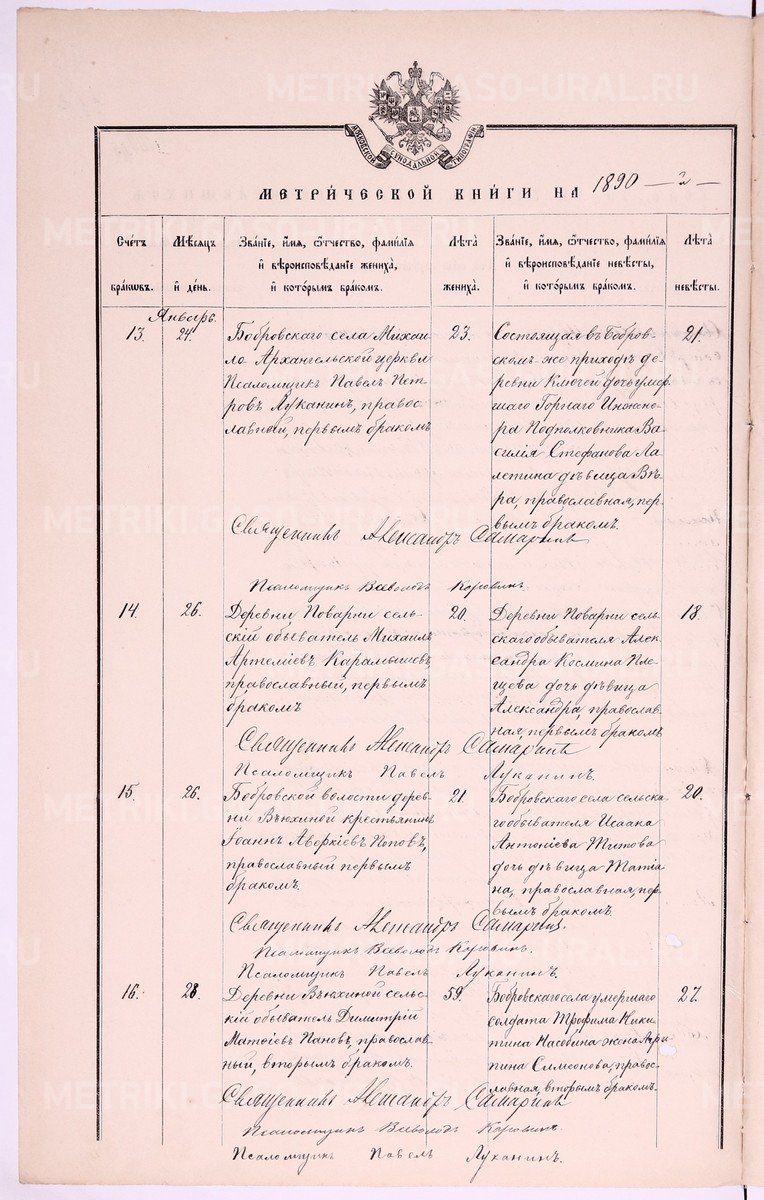 МЕТРИ́ЧЕСКОЙ КНИ́ГИ НА 1890 —й—
Счетъ бра́ковъ.
Мѣсяцъ и҆ де́нь.
Зва́нїе, и҆́мя, ѻ҆́тчество, фами́лїя и҆ вѣроисповѣ́данїе жениха̀, и҆ кото́рымъ бра́комъ.
Лѣ́та жениха̀.
Зва́нїе, и҆́мя, ѻ҆́тчество, фами́лїя и҆ вѣроисповѣ́данїе невѣ́сты, и҆ кото́рымъ бра́комъ.
Лѣ́та невѣ́сты.
Январь.
13.
24.
Бобровскаго села Михаи-
ло Архангельской церкви
Псаломщикъ Павелъ Пет
ровъ Луканинъ, правос-
лавный, первымъ бракомъ
23.
Состоящая въ Бобров-
скомъ-же приходѣ де-
ревни Ключей дочь умер
шаго Горнаго Инжене-
ра Подполковника Ва-
силія Стефанова Ла
летина дѣвица Вѣ-
ра, православная, пер-
вымъ бракомъ.
21.
Священникъ Александръ Самаринъ
Псаломщикъ Всеволодъ Коровинъ.
14.
26.
Деревни Поварни сель-
скій обыватель Михаилъ
Артеміевъ Карамышевъ,
православный, первымъ
бракомъ
20.
Деревни Поварни сель-
скаго обывателя Алек-
сандра Космина Пле-
щева дочь дѣвица
Александра, православ-
ная, первымъ бракомъ
18.
Священникъ Александръ Самаринъ
Псаломщикъ Павелъ Луканинъ.
15.
26.
Бобровской волости дерев-
ни Вьюхиной крестьянинъ
Іоаннъ Аверкіевъ Поповъ,
православный первымъ
бракомъ.
21.
Бобровскаго села сельска-
го обывателя Исаака
Антоніева Титова
дочь дѣвица Татіа-
на, православная, пер-
вымъ бракомъ.
20.
Священникъ Александръ Самаринъ.
Псаломщикъ Всеволодъ Коровинъ.
Псаломщикъ Павелъ Луканинъ.
16.
28.
Деревни Вьюхиной сельс-
кій обыватель Димитрій
Матөіевъ Пановъ, православ-
ный, вторымъ бракомъ.
59.
Бобровскаго села умершаго
солдата Трофима Ники
тина Насобина жена Агри
пина Симеонова, правос-
лавная, вторымъ бракомъ.
27.
Священникъ Александръ Самаринъ
Псаломщикъ Всеволодъ Коровинъ.
Псаломщикъ Павелъ Луканинъ.